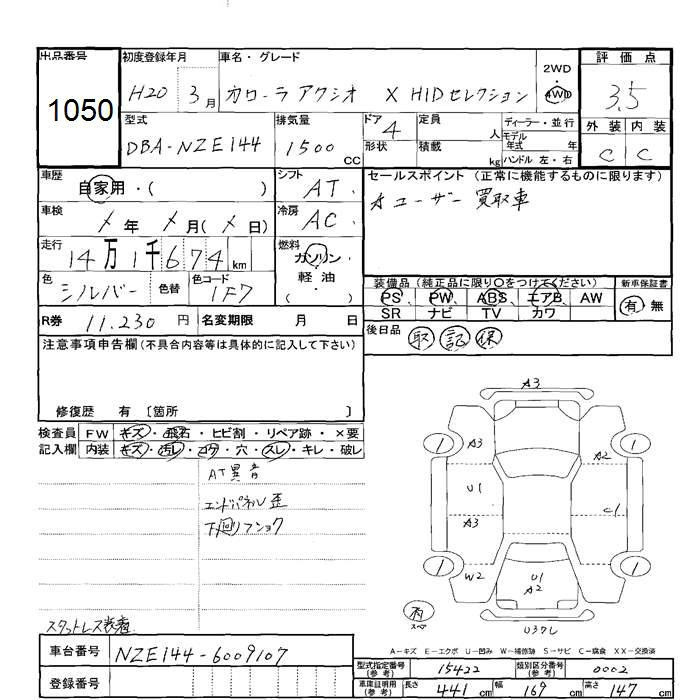 出品番号 初度登録年月 車名・グレード 2WD 評価点
1050 H20 3月 カローラ アクシオ X HIDセレクション 4WD 3.5
型式 排気量 ドア 4 定員 人 ディーラー・並行 外装 内装
DBA-NZE144 1500 CC 形状 積載 kg モデル年式 年 ハンドル 左・右 C C
車歴 自家用・( ) シフト AT セールスポイント (正常に機能するものに限ります)
車検 年 月( 日) 冷房 AC ユーザー買取車
走行 14万1千674km 燃料 ガソリン・軽・油 ( )
色 シルバー 色替 色コード 1F7 装備品 (純正品に限り○をつけてください) 新車保証書
PS PW ABS エアB AW 有 無
SR ナビ TV カワ
R券 11,230 円 名変期限 月 日 後日品 取 記 保
注意事項申告欄 (不具合内容等は具体的に記入して下さい)
修復歴 有 〔箇所 〕
検査員 FW キズ・飛石・ヒビ割・リペア跡・×要
記入欄 内装 キズ・汚レ・コゲ・穴・スレ・キレ・破レ
AT異音
エンドパネル歪
下回りフショク
スタットレス装着
A3
1 A3 A2 1
U1 C1
A3
1 W2 U1 1
A2
スペ
A-キズ E-エクボ U-凹み W-補修跡 S-サビ C-腐食 XX-交換済
車台番号 NZE144-6009107
登録番号
型式指定番号 (参考) 15422 類別区分番号 (参考) 0002
車庫証明用 (参考) 長さ 441 cm 幅 169 cm 高さ 147 cm